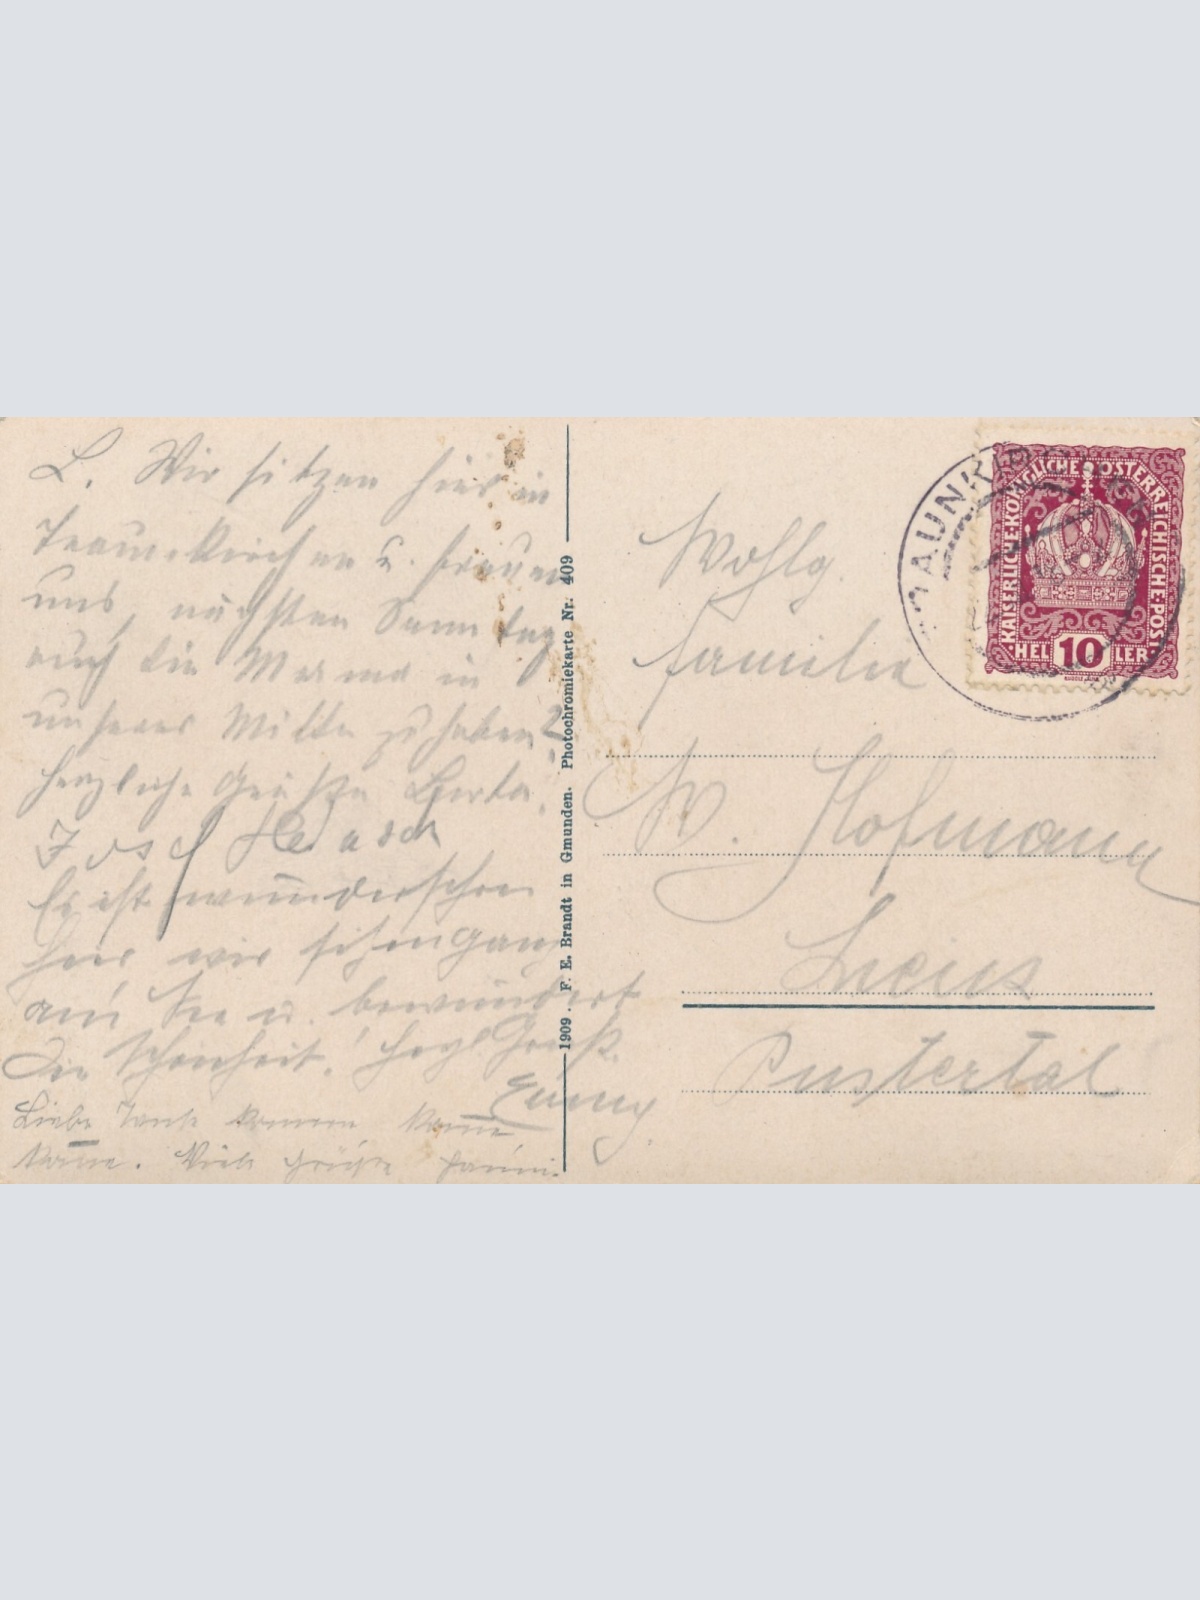 L. Wir sitzen hier in
Traunkirchen u. freuen
uns, nächsten Sonntag
auch die Mama in
unserer Mitte zu haben
herzliche Grüße Berta.
Josef
Es ist wunderschön
hier wir sitzen ganz
am See u. bewundert
die Schönheit! Herzl. Gruß.
Liebe Tante komme
komme. Viele Grüße Fanni.
1909. F. E. Brandt in Gmunden. Photochromiekarte Nr. 409
TRAUNKIRCHEN
KAISERLICHE·KÖNIGLICHE·ÖSTERREICHISCHE·POST
HEL 10 LER
Wohlg.
Familie
W. Hofmann
Lienz
Pustertal